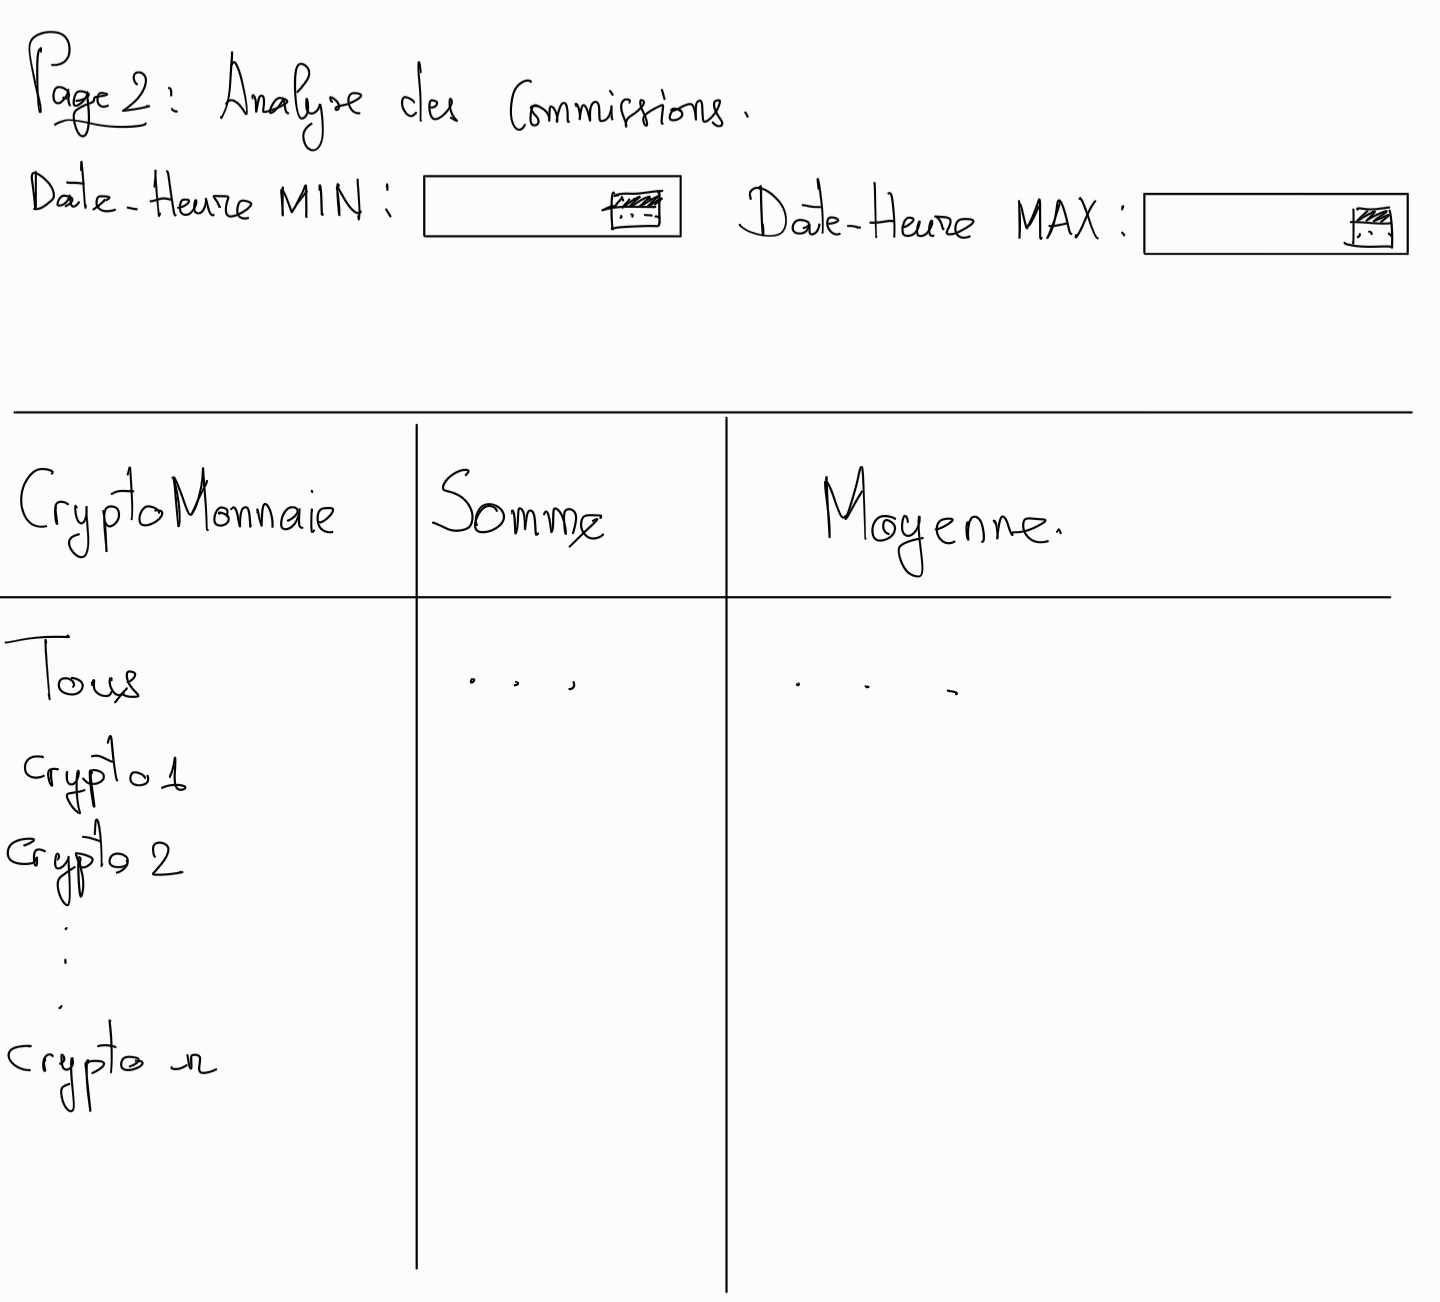 Page 2 : Analyse des Commissions.
Date-Heure MIN : Date-Heure MAX :
CryptoMonnaie Somme Moyenne.
Tous . . . . . .
Crypto 1
Crypto 2
.
.
.
Crypto n